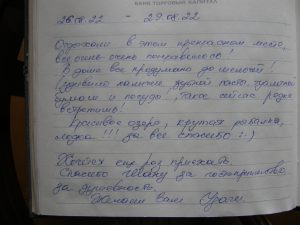 БАНК ТОРГОВЫЙ КАПИТАЛ
26.08.22 - 29.08.22
Отдыхали в этом прекрасном месте,
все очень очень понравилось!
В доме все продумано до мелочей!
Удивило наличие зубной пасты, туалетной
бумаги и посуды, такое сейчас редко
встретишь!
Красивое озеро, крутая рыбалка,
лодка!!! За все спасибо :)
Хочется еще раз приехать.
Спасибо за гостеприимство,
за душевность.
Желаем вам